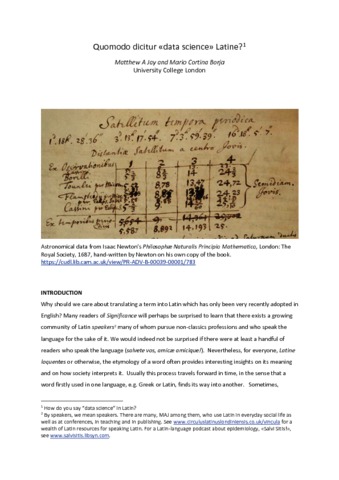 Quomodo dicitur «data science» Latine?¹
Matthew A Jay and Mario Cortina Borja
University College London
Satellitum tempora periodica
1ᵈ. 18ʰ. 28′. 36″. 3ᵈ. 13ʰ. 17′. 54″. 7ᵈ. 3ʰ. 59′. 39″. 16ᵈ. 18ʰ. 5′. 7″.
Distantiæ Satellitum a centro Jovis.
Ex Observationibus 1 2 3 4
Cassini
Ex temporibus
Astronomical data from Isaac Newton's Philosophae Naturalis Principia Mathematica, London: The
Royal Society, 1687, hand-written by Newton on his own copy of the book.
https://cudl.lib.cam.ac.uk/view/PR-ADV-B-00039-00001/783
INTRODUCTION
Why should we care about translating a term into Latin which has only been very recently adopted in
English? Many readers of Significance will perhaps be surprised to learn that there exists a growing
community of Latin speakers² many of whom pursue non-classics professions and who speak the
language for the sake of it. We would indeed not be surprised if there were at least a handful of
readers who speak the language (salvete vos, amicae amicique!). Nevertheless, for everyone, Latine
loquentes or otherwise, the etymology of a word often provides interesting insights on its meaning
and on how society interprets it. Usually this process travels forward in time, in the sense that a
word firstly used in one language, e.g. Greek or Latin, finds its way into another. Sometimes,
¹ How do you say "data science" in Latin?
² By speakers, we mean speakers. There are many, MAJ among them, who use Latin in everyday social life as
well as at conferences, in teaching and in publishing. See www.circuluslatinuslondiniensis.co.uk/vincula for a
wealth of Latin resources for speaking Latin. For a Latin-language podcast about epidemiology, «Salvi Sitis!»,
see www.salvisitis.libsyn.com.